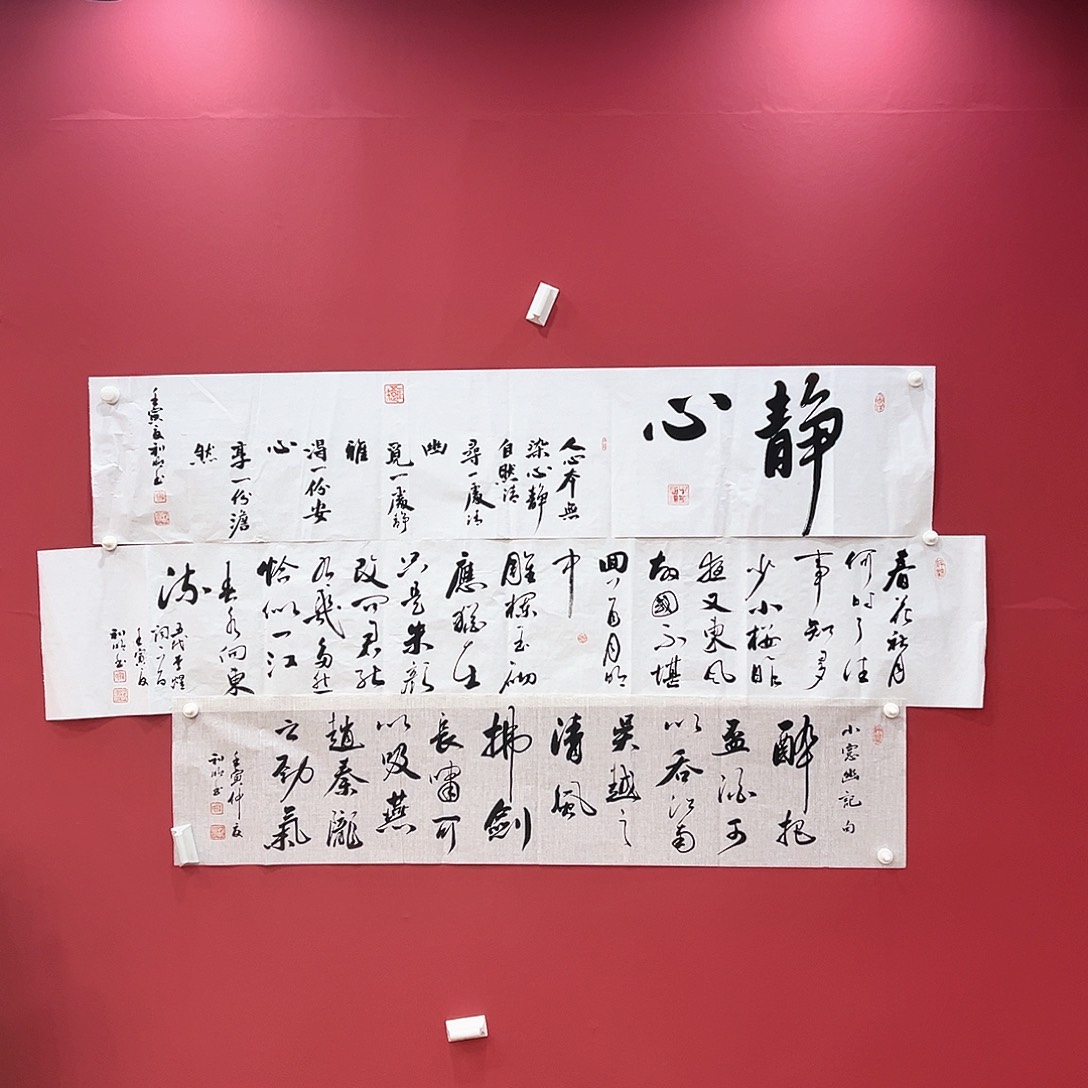 静
心
人心本無
染心静
自然清
尋一處清
幽
覓一處静
雅
渴一份安
心
享一份澹
然
壬寅夏利明书
春花秋月
何时了往
事知多
少小楼昨
夜又東风
故國不堪
回首月明
中
雕欄玉砌
應猶在
只是朱颜
改问君能
有幾多愁
恰似一江
春水向東
流
五代李煜
词一首
壬寅夏
利明书
小窓幽記句
醉把
盃酒可
以吞江南
吴越之
清風
拂劍
長嘯可
以吸燕
趙秦隴
之劲氣
壬寅仲夏
利明书